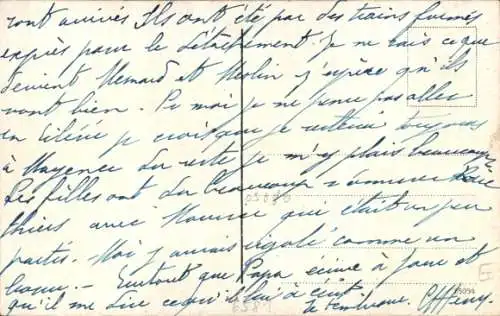 sont arrivés Ils ont été par des trains formés
exprès pour le détachement. Je ne sais ce que
devient Menard et Merlin j'espère qu'ils
vont bien. Pr moi je ne pense pas aller
en Silésie je crois que je resterai toujours
à Mayence du reste je m'y plais beaucoup
Les filles ont du beaucoup s'amuser
hier avec Maurice qui était un peu
partis. Moi j'aurais rigolé comme un
Surtout que Papa écrive à
qu'il me dise ce qu'il lui a
05086
0587
99094
E